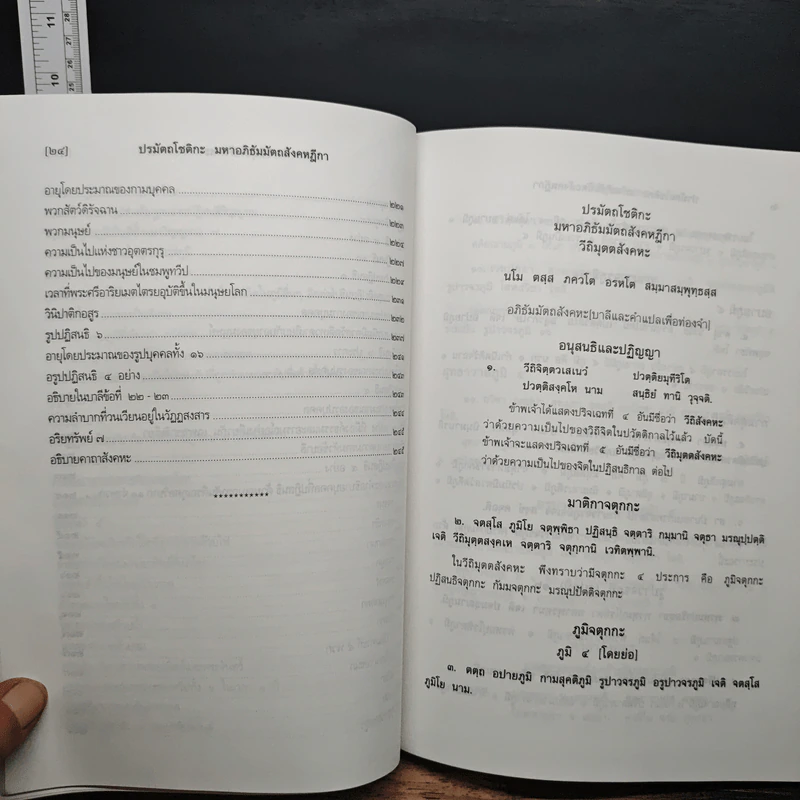 [๒๔] ปรมัตถโชติกะ มหาอภิธัมมัตถสังคหฎีกา
อายุโดยประมาณของกามบุคคล ๒๒๑
พวกสัตว์ดิรัจฉาน ๒๒๓
พวกมนุษย์ ๒๒๔
ความเป็นไปแห่งชาวอุตตรกุรุ ๒๒๗
ความเป็นไปของมนุษย์ในชมพูทวีป
เวลาที่พระศรีอาริยเมตไตรยอุบัติขึ้นในมนุษยโลก ๒๓๑
วินิปาติกอสูร ๒๓๒
รูปปฏิสนธิ ๖ ๒๓๗
อายุโดยประมาณของรูปบุคคลทั้ง ๑๖ ๒๔๑
อรูปปฏิสนธิ ๔ อย่าง ๒๔๓
อธิบายในบาลีข้อที่ ๒๒ - ๒๓
ความลำบากที่วนเวียนอยู่ในวัฏฏสงสาร
อริยทรัพย์ ๗
อธิบายคาถาสังคหะ
***********
ปรมัตถโชติกะ
มหาอภิธัมมัตถสังคหฎีกา
วีถิมุตตสังคหะ
นโม ตสฺส ภควโต อรหโต สมฺมาสมฺพุทฺธสฺส
อภิธัมมัตถสังคหะ[บาลีและคำแปลเพื่อท่องจำ]
อนุสนธิและปฏิญญา
๑. วีถิจิตฺตวเสเนวํ ปวตฺติยมุทีริโต
ปวตฺติสงฺคโห นาม สนฺธิยํ ทานิ วุจฺจติ.
ข้าพเจ้าได้แสดงปริจเฉทที่ ๔ อันมีชื่อว่า วีถิสังคหะ
ว่าด้วยความเป็นไปของวิถีจิตในปวัตติกาลไว้แล้ว บัดนี้
ข้าพเจ้าจะแสดงปริจเฉทที่ ๕ อันมีชื่อว่า วีถิมุตตสังคหะ
ว่าด้วยความเป็นไปของจิตในปฏิสนธิกาล ต่อไป
มาติกาจตุกกะ
๒. จตสฺโส ภูมิโย จตุพฺพิธา ปฏิสนฺธิ จตฺตาริ กมฺมานิ จตุธา มรณุปฺปตฺติ
เจติ วีถิมุตฺตสงฺคเห จตฺตาริ จตุกฺกานิ เวทิตพฺพานิ.
ในวีถิมุตตสังคหะ พึงทราบว่ามีจตุกกะ ๔ ประการ คือ ภูมิจตุกกะ
ปฏิสนธิจตุกกะ กัมมจตุกกะ มรณุปปัตติจตุกกะ
ภูมิจตุกกะ
ภูมิ ๔ [โดยย่อ]
๓. ตตฺถ อปายภูมิ กามสุคติภูมิ รูปาวจรภูมิ อรูปาวจรภูมิ เจติ จตสฺโส
ภูมิโย นาม.